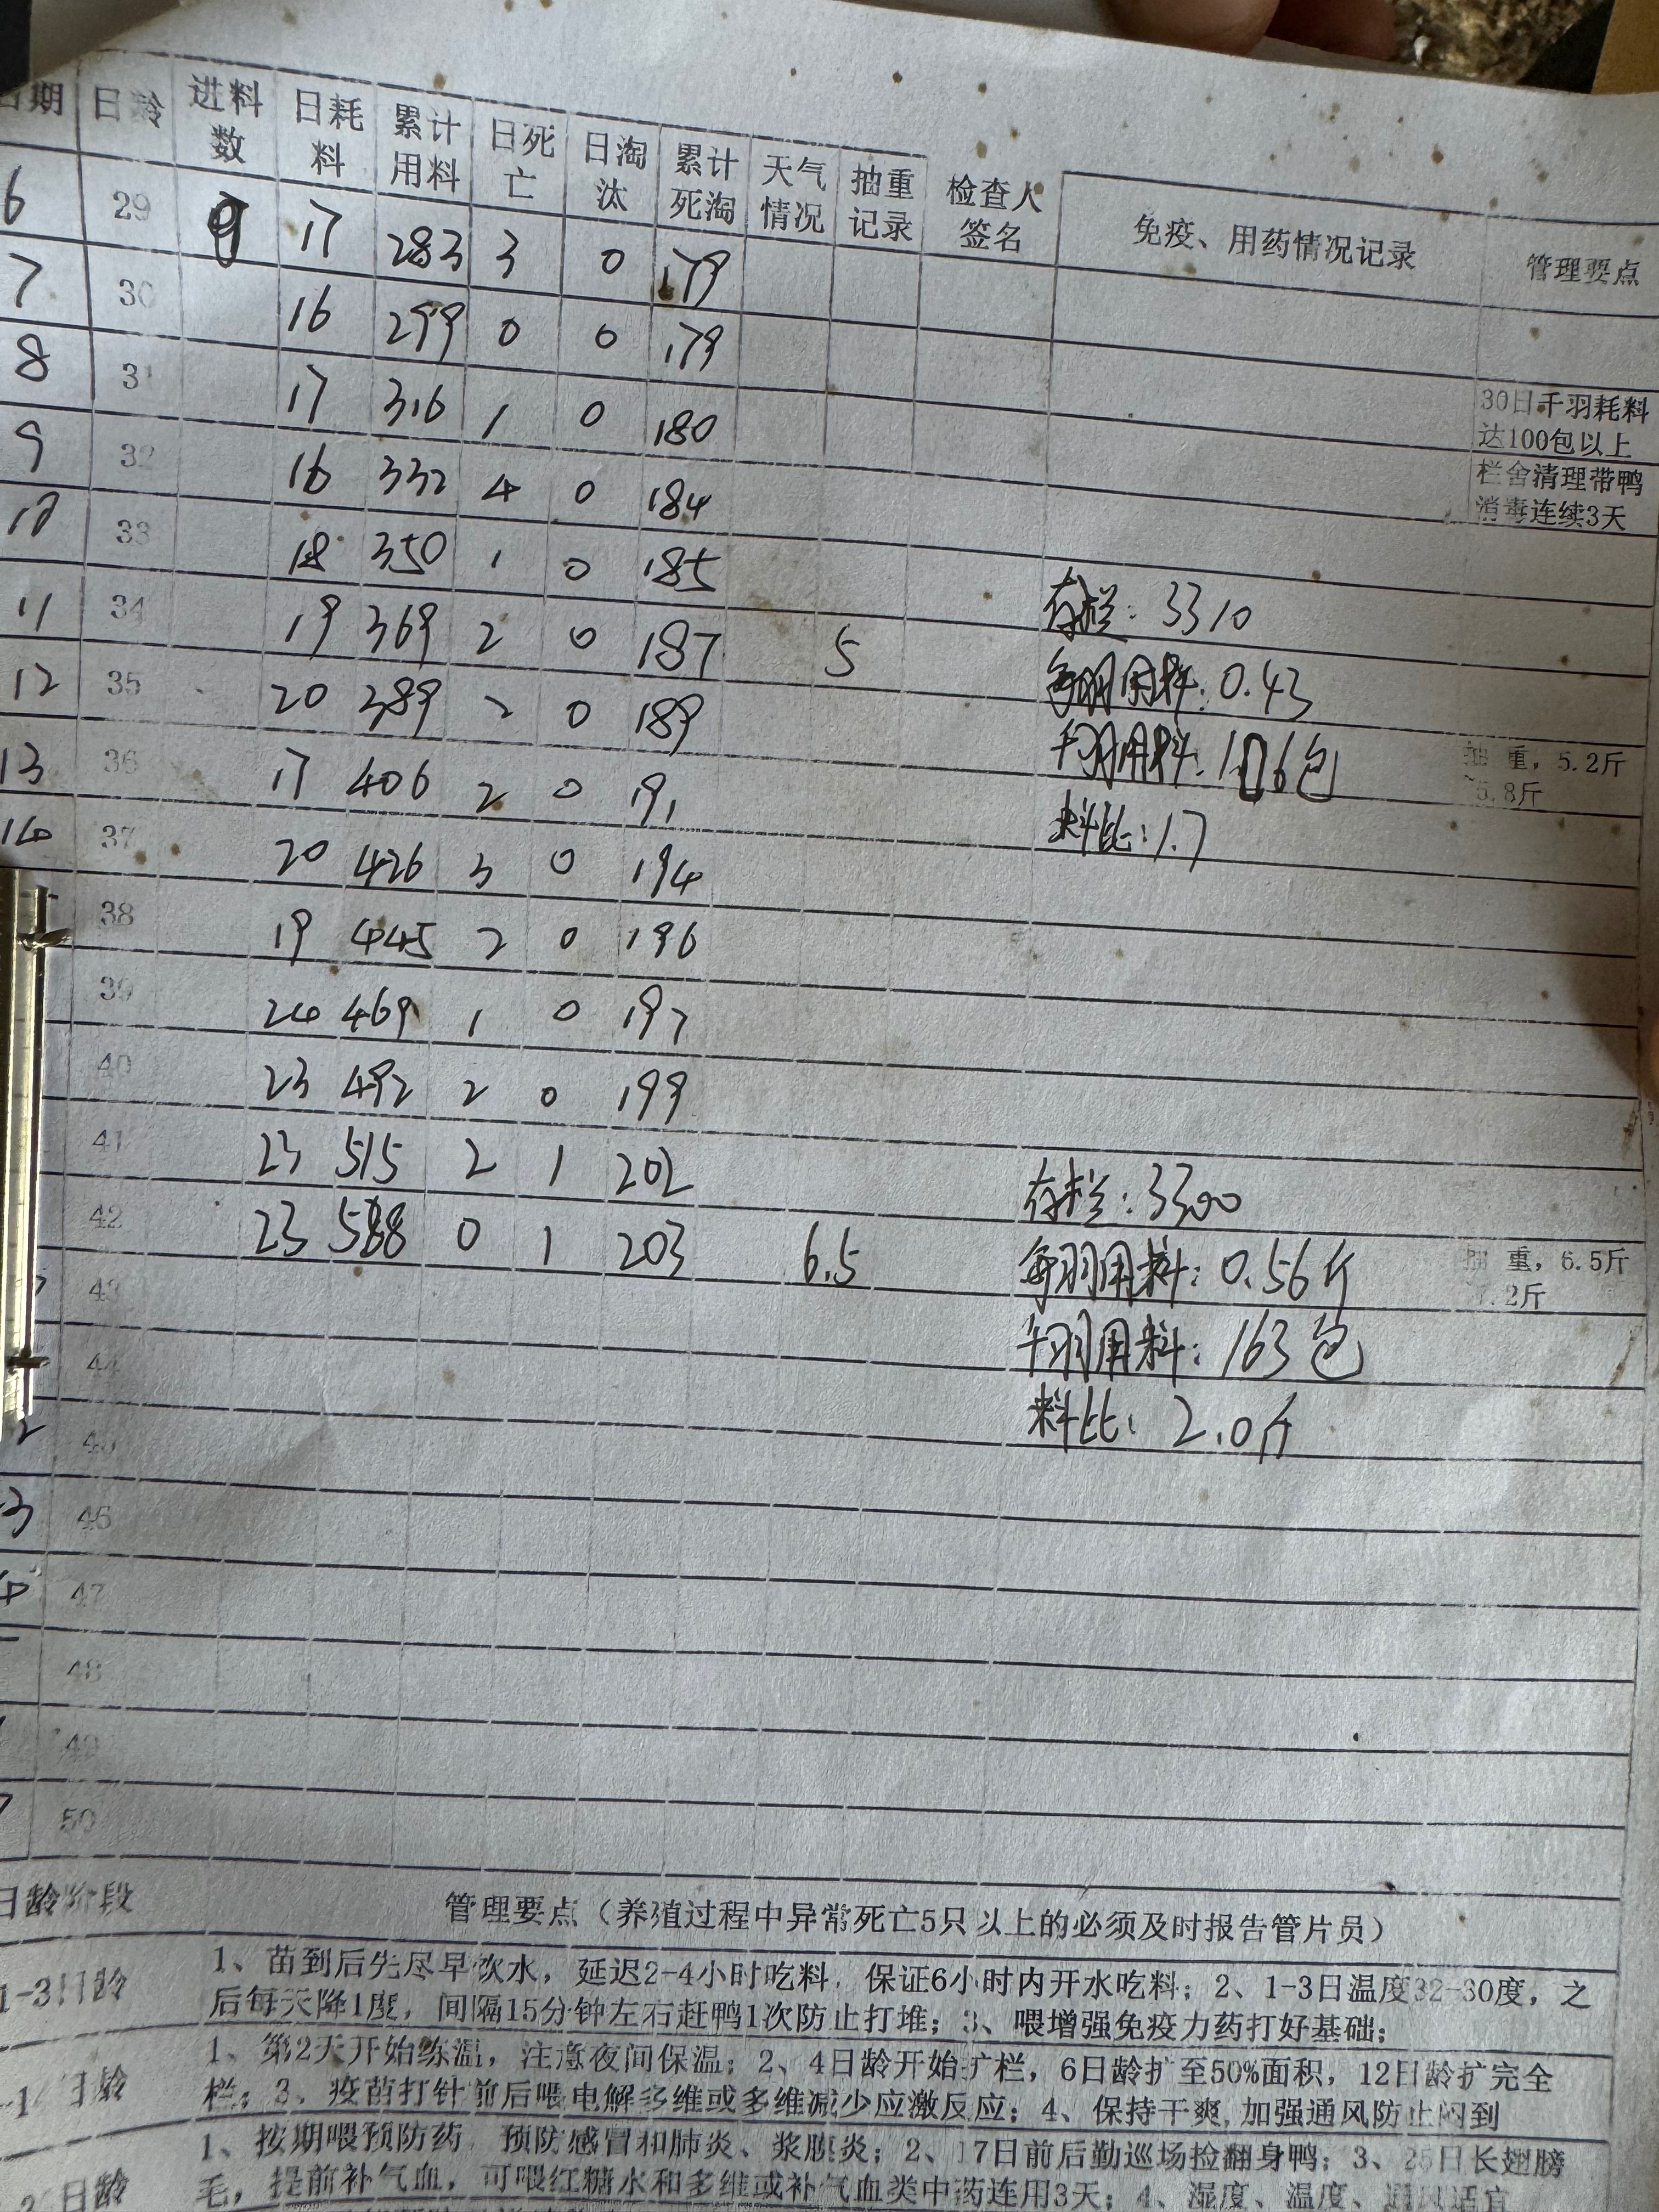 日期 日龄 进料数 日耗料 累计用料 日死亡 日淘汰 累计死淘 天气情况 抽重记录 检查人签名 免疫、用药情况记录 管理要点
6 29 17 283 3 0 179
7 30 16 299 0 0 179
8 31 17 316 1 0 180 30日千羽耗料达100包以上
9 32 16 332 4 0 184 栏舍清理带鸭消毒连续3天
10 33 18 350 1 0 185 存栏:3310
11 34 19 369 2 0 187 5 每羽用料:0.43
12 35 20 389 2 0 189 千羽用料:106包 抽 重,5.2斤
5.8斤
13 36 17 406 2 0 191 料比:1.7
14 37 20 426 3 0 194
38 19 445 2 0 196
39 24 469 1 0 197
40 23 492 2 0 199
41 23 515 2 1 202 存栏:3300
42 23 588 0 1 203 6.5 每羽用料:0.56斤 抽 重,6.5斤
.2斤
43 千羽用料:163包
44 料比:2.0斤
45
46
47
48
49
50
日龄阶段 管理要点(养殖过程中异常死亡5只以上的必须及时报告管片员)
1-3日龄 1、苗到后先尽早饮水,延迟2-4小时吃料,保证6小时内开水吃料;2、1-3日温度32-30度,之
后每天降1度,间隔15分钟左右赶鸭1次防止打堆;3、喂增强免疫力药打好基础;
日龄 1、第2天开始练温,注意夜间保温;2、4日龄开始扩栏,6日龄扩至50%面积,12日龄扩完全
栏;3、疫苗打针前后喂电解多维或多维减少应激反应;4、保持干爽,加强通风防止闷到
日龄 1、按期喂预防药,预防感冒和肺炎、浆膜炎;2、17日前后勤巡场捡翻身鸭;3、25日长翅膀
毛,提前补气血,可喂红糖水和多维或补气血类中药连用3天;4、湿度、温度、通风适宜